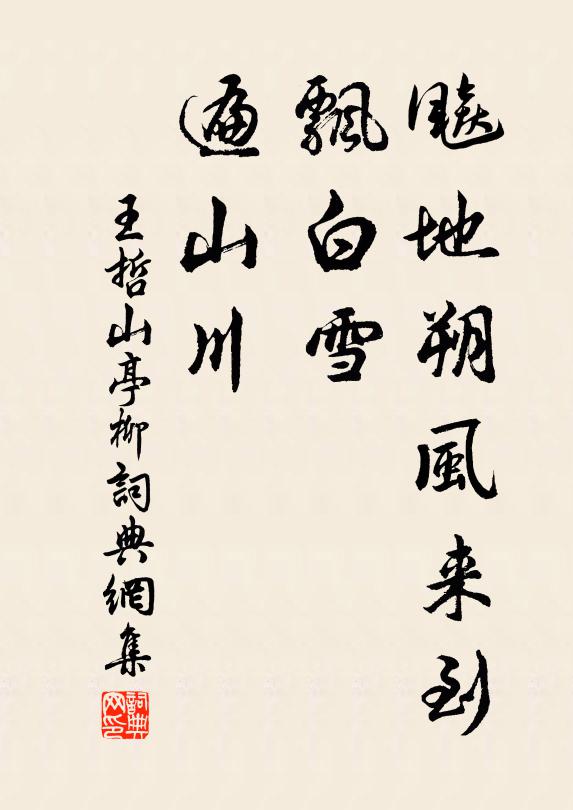 飈地朔風来到
飄白雪
遍山川
王哲山亭柳詞典網集
詞典网印